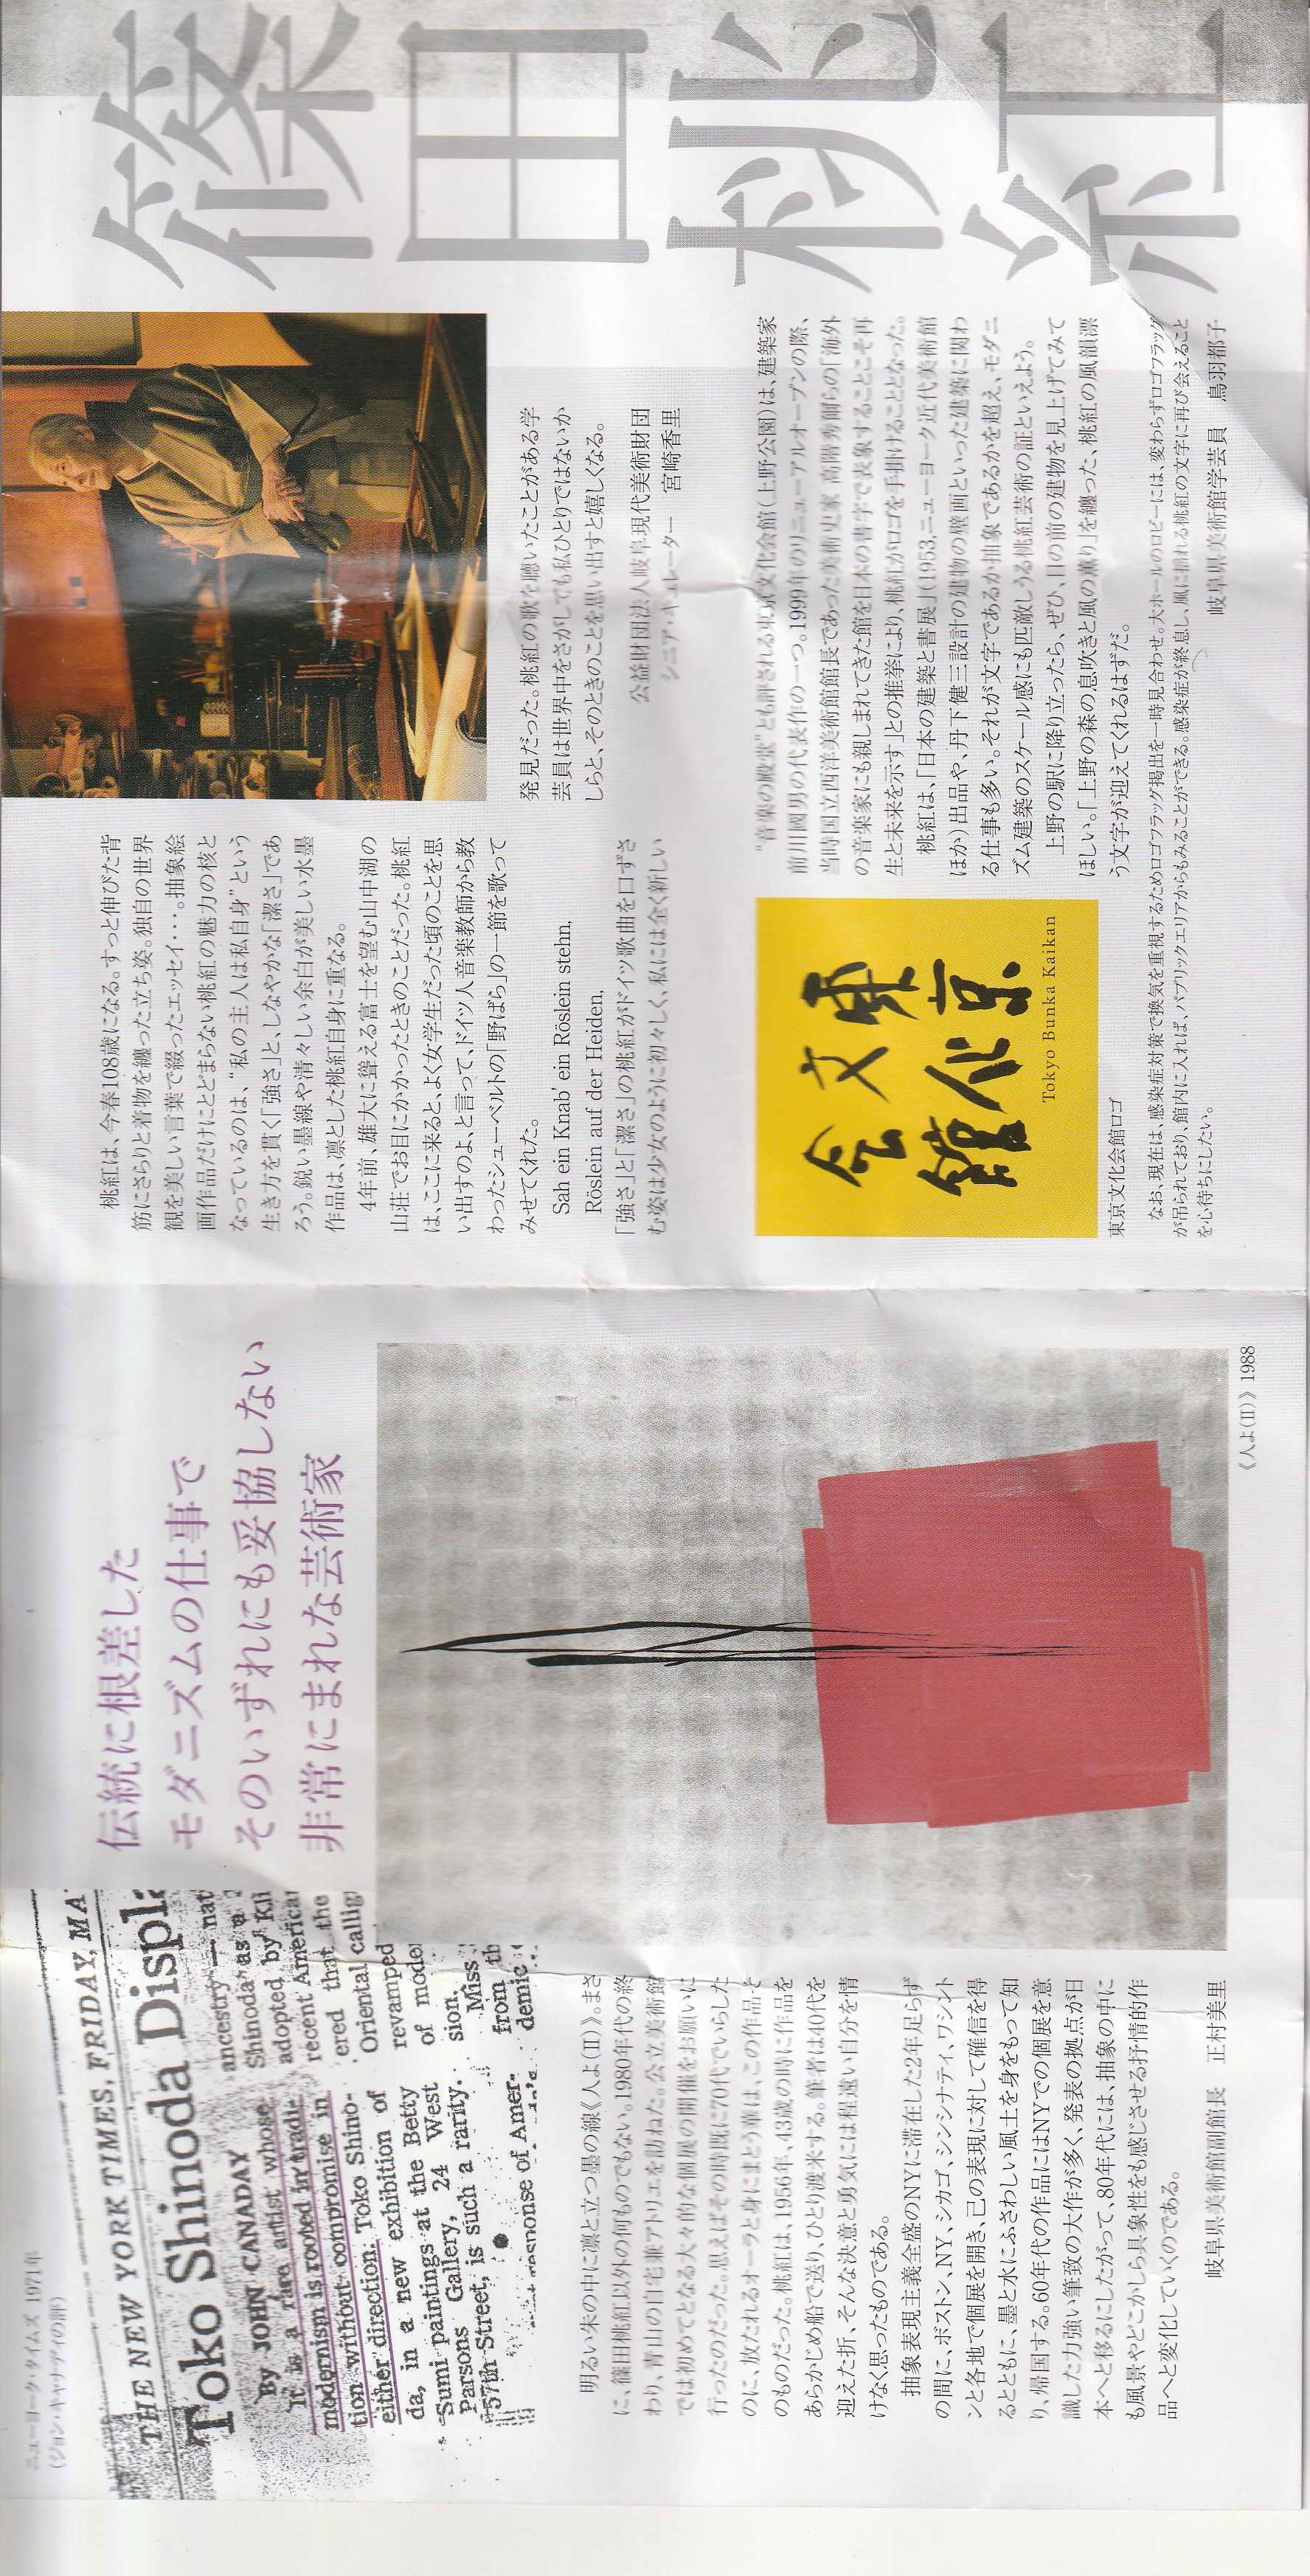 ニューヨーク・タイムズ 1971年
(ジョン・キャナディの評)
THE NEW YORK TIMES, FRIDAY, MA
Toko Shinoda Displ
By JOHN CANADAY
It is a rare artist whose
modernism is rooted in tradi-
tion without compromise in
either direction. Toko Shino-
da, in a new exhibition of
Sumi paintings at the Betty
Parsons Gallery, 24 West
57th Street, is such a rarity.
response of Amer-
ancestry — nat
Shinoda as a
adopted by Kli
recent America
ered that the
Oriental callig
revamped
of mode
sion.
Miss
from th
demic
伝統に根差した
モダニズムの仕事で
そのいずれにも妥協しない
非常にまれな芸術家
《人よ(II)》 1988
明るい朱の中に凛と立つ墨の線《人よ(II)》。まさ
に、篠田桃紅以外の何ものでもない。1980年代の終
わり、青山の自宅兼アトリエを訪ねた。公立美術館
では初めてとなる大々的な個展の開催をお願いに
行ったのだった。思えばその時既に70代でいらした
のに、放たれるオーラと身にまとう華は、この作品そ
のものだった。桃紅は、1956年、43歳の時に作品を
あらかじめ船で送り、ひとり渡米する。筆者は40代を
迎えた折、そんな決意と勇気には程遠い自分を情
けなく思ったものである。
抽象表現主義全盛のNYに滞在した2年足らず
の間に、ボストン、NY、シカゴ、シンシナティ、ワシント
ンと各地で個展を開き、己の表現に対して確信を得
るとともに、墨と水にふさわしい風土を身をもって知
り、帰国する。60年代の作品にはNYでの個展を意
識した力強い筆致の大作が多く、発表の拠点が日
本へと移るにしたがって、80年代には、抽象の中に
も風景やどこかしら具象性をも感じさせる抒情的作
品へと変化していくのである。
岐阜県美術館副館長 正村美里
篠田桃紅
桃紅は、今春108歳になる。すっと伸びた背
筋にさらりと着物を纏った立ち姿。独自の世界
観を美しい言葉で綴ったエッセイ・・・。抽象絵
画作品だけにとどまらない桃紅の魅力の核と
なっているのは、“私の主人は私自身”という
生き方を貫く「強さ」と、しなやかな「潔さ」であ
ろう。鋭い墨線や清々しい余白が美しい水墨
作品は、凛とした桃紅自身に重なる。
4年前、雄大に聳える富士を望む山中湖の
山荘でお目にかかったときのことだった。桃紅
は、ここに来ると、よく女学生だった頃のことを思
い出すのよ、と言って、ドイツ人音楽教師から教
わったシューベルトの「野ばら」の一節を歌って
みせてくれた。
Sah ein Knab' ein Röslein stehn,
Röslein auf der Heiden,
「強さ」と「潔さ」の桃紅がドイツ歌曲を口ずさ
む姿は少女のように初々しく、私には全く新しい
発見だった。桃紅の歌を聴いたことがある学
芸員は世界中をさがしても私ひとりではないか
しらと、そのときのことを思い出すと嬉しくなる。
公益財団法人岐阜現代美術財団
シニア・キュレーター 宮崎香里
東京
文化
会館
Tokyo Bunka Kaikan
東京文化会館ロゴ
“音楽の殿堂”とも評される東京文化会館(上野公園)は、建築家
前川國男の代表作の一つ。1999年のリニューアルオープンの際、
当時国立西洋美術館館長であった美術史家 高階秀爾らの「海外
の音楽家にも親しまれてきた館を日本の書字で表象することこそ再
生と未来を示す」との推挙により、桃紅がロゴを手掛けることとなった。
桃紅は、「日本の建築と書展」(1953,ニューヨーク近代美術館
ほか)出品や、丹下健三設計の建物の壁画といった建築に関わ
る仕事も多い。それが文字であるか抽象であるかを超え、モダニ
ズム建築のスケール感にも匹敵しうる桃紅芸術の証といえよう。
上野の駅に降り立ったら、ぜひ、目の前の建物を見上げてみて
ほしい。「上野の森の息吹きと風の薫り」を纏った、桃紅の風韻漂
う文字が迎えてくれるはずだ。
なお、現在は、感染症対策で換気を重視するためロゴフラッグ掲出を一時見合わせ。大ホールのロビーには、変わらずロゴフラッグ
が吊られており、館内に入れば、パブリックエリアからもみることができる。感染症が終息し、風に揺れる桃紅の文字に再び会えること
を心待ちにしたい。
岐阜県美術館学芸員 鳥羽都子